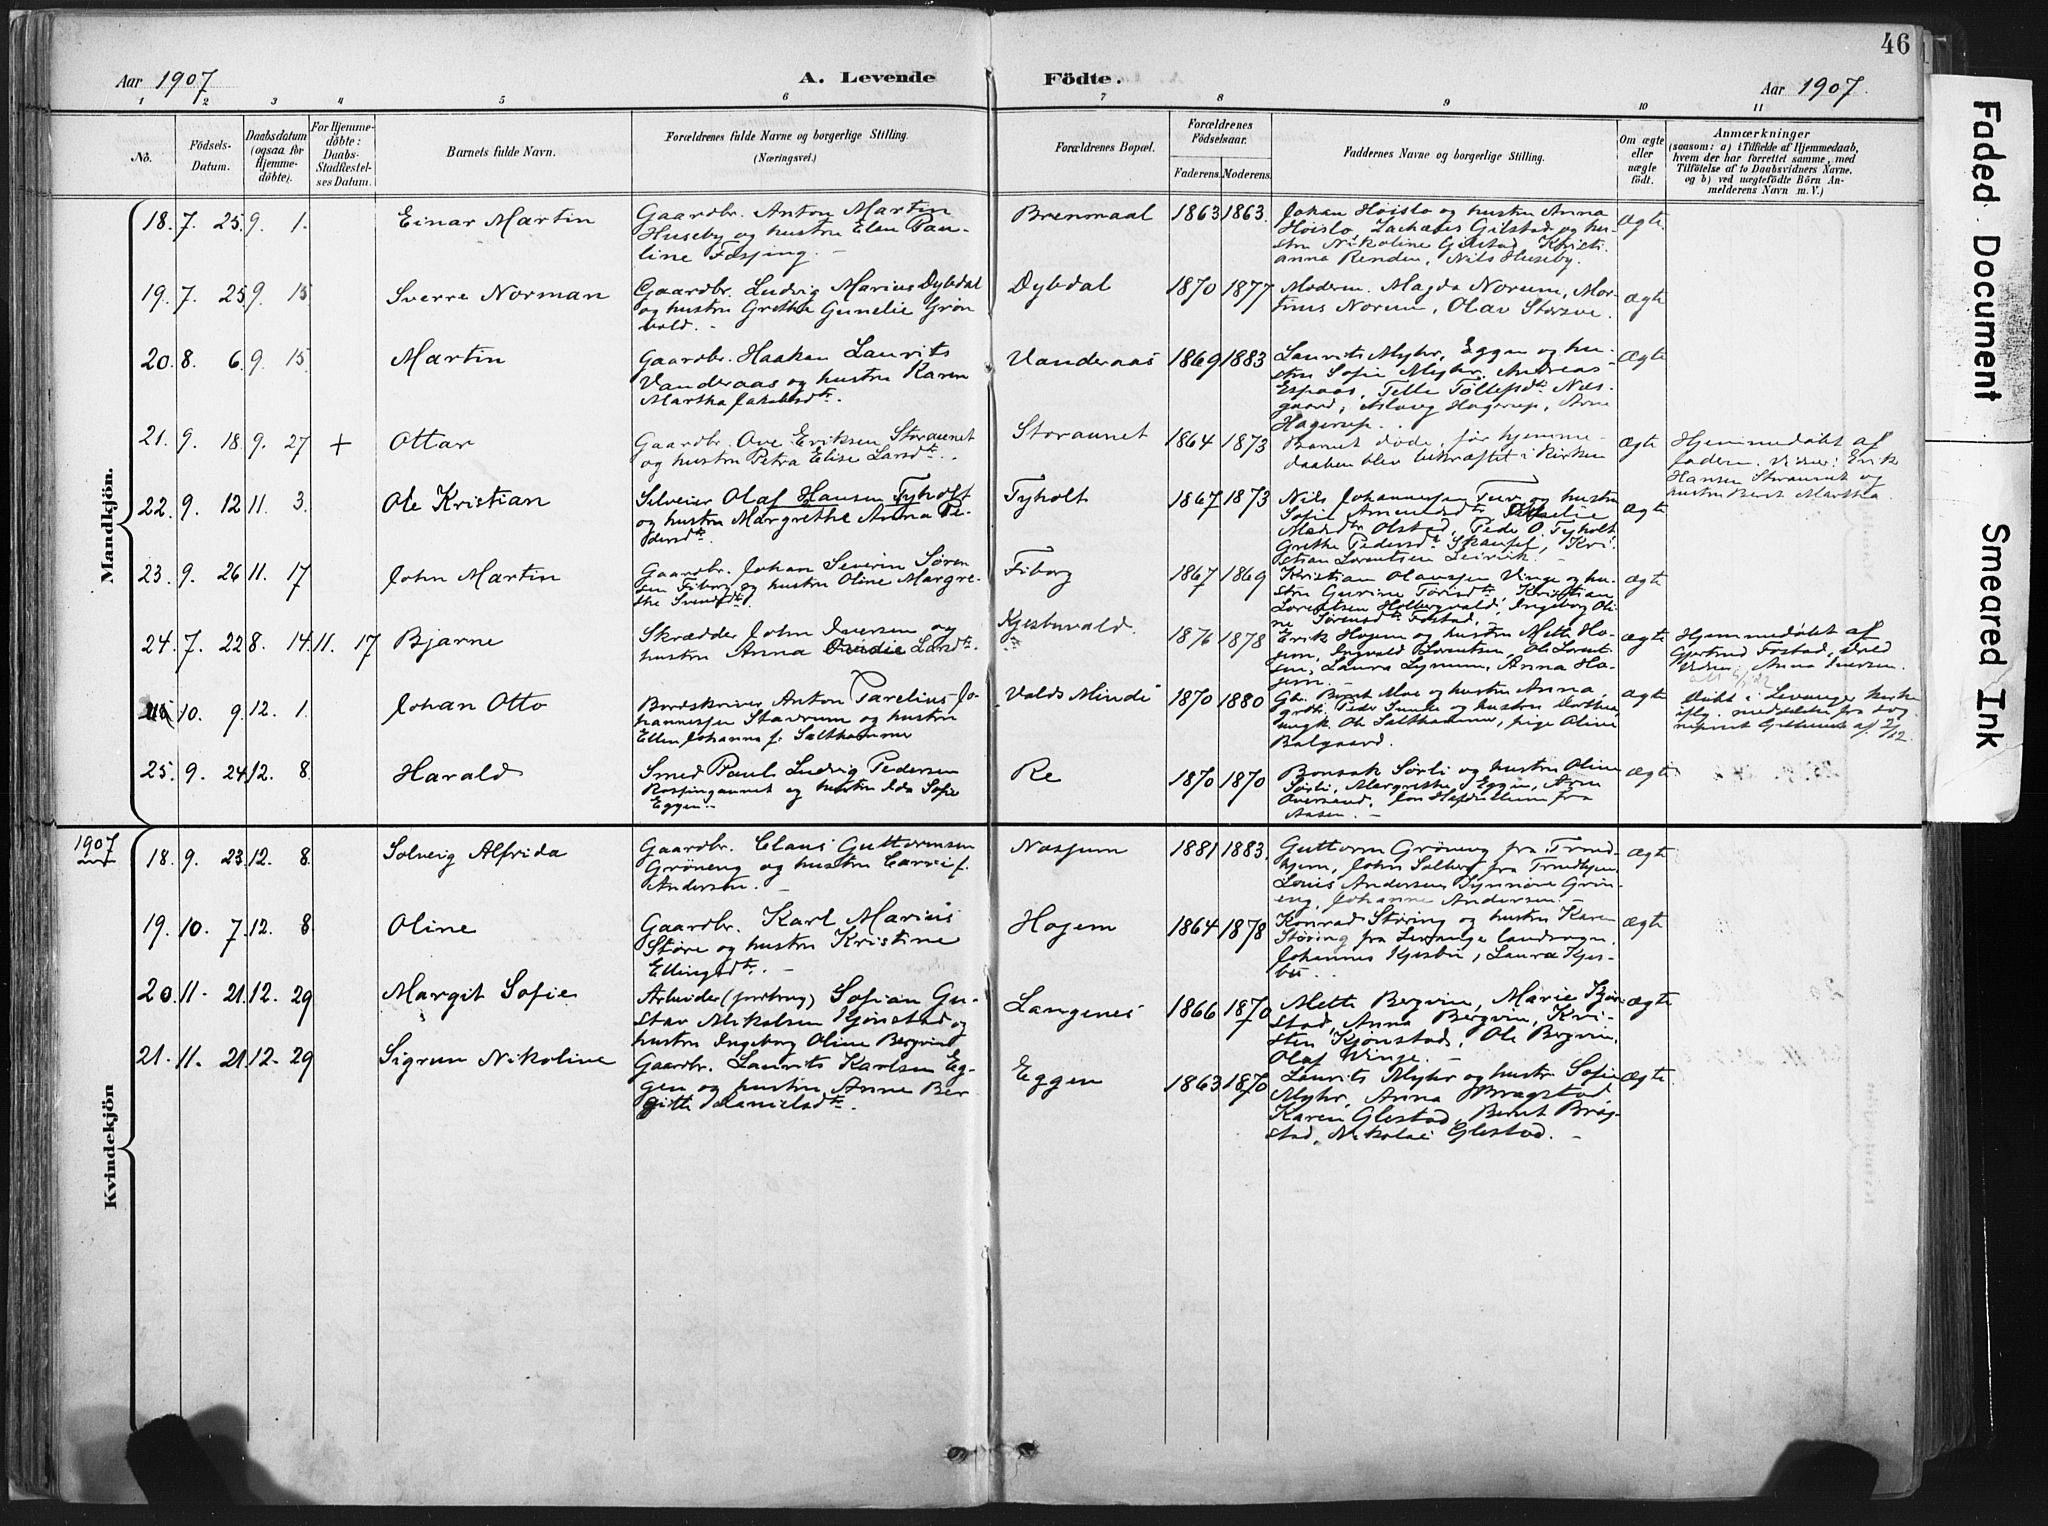 46
Aar 1907
A. Levende Födte.
Aar 1907.
1 2 3 4 5 6 7 8 9 10 11
No.
Födsels-
Datum.
Daabsdatum
(ogsaa for
Hjemme-
döbte).
For Hjemme-
döbte:
Daabs-
Stadfæstel-
ses Datum.
Barnets fulde Navn.
Forældrenes fulde Navne og borgerlige Stilling.
(Næringsvei.)
Forældrenes Bopæl.
Forældrenes
Födselsaar.
Faderens. Moderens.
Faddernes Navne og borgerlige Stilling.
Om ægte
eller
uægte
födt.
Anmærkninger
(saasom: a) i Tilfælde af Hjemmedaab,
hvem der har forrettet samme, med
Tilföielse af to Daabsvidners Navne.
og b) ved uægtefödte Börn An-
melderens Navn m. V.)
Mandkjön.
18. 7. 25. 9. 1.
Einar Martin
Gaardbr. Anton Martin
Huseby og hustru Elen Pau-
line Fæsjing.
Brenmaal
1863 1863.
Johan Hoislo og hustru Anna
Hoislo, Zachæus Gilstad og hu-
stru Nikoline Gilstad, Kristi-
anna Renden, Nils Huseby.
Ægte
19. 7. 25. 9. 15
Sverre Norman
Gaardbr. Ludvig Marius Dybdal
og hustru Grethe Gunelie Grön
vold.
Dybdal
1870 1877
Moderen. Magda Norum, Mar-
tinus Norum, Olav Storsve.
Ægte
20. 8. 6. 9. 15
Martin
Gaardbr. Haakan Laurits
Vanderaas og hustru Karen
Martha Jakobsdtr.
Vanderaas
1869 1883
Laurits Myhr, Eggen og hu-
stru Sofie Myhr, Andreas
Espaas, Telle Töllefsdtr. Næs-
gaard, Aslaug Hagerup, Arne
Hagerup.
Ægte
21. 9. 18. 9. 27 +
Ottar
Gaardbr. Ove Eriksen Storaunet
og hustru Petra Elise Larsdtr.
Storaunet
1864 1873
Barnet döde, för hjemme-
daaben blev bekræftet i kirken
Ægte
Hjemmedöbt af
faderen. Vidner: Erik
Hansen Storaunet og
hustru Berit Martha
22. 9. 12 11. 3.
Ole Kristian
Selveier Olaf Hansen Tyholt
og hustru Margrethe Anna Pe-
dersdtr.
Tyholt
1867 1873
Nils Johannesen Tuv og hustru
Sofie
Olstad, Peder O. Tyholt
Grethe Pedersdtr. Skausel, Kri-
stian Lorentsen Leirvik.
Ægte
23. 9. 26 11. 17
John Martin
Gaardbr. Johan Severin Sören
sen Fiborg og hustru Oline Margre-
the Svendsdtr.
Fiborg
1867 1869
Kristian Olaussen Vinge og hu-
stru Gurine Toresdtr., Kristian
Lorentsen Holbergvald, Ingeborg Oli-
ne Sörensdtr. Fostad.
Ægte
24. 7. 22 8. 14. 11. 17
Bjarne
Skrædder John Iversen og
hustru Anna Ovidie Larsdtr.
Kjesbuvald.
1876 1878
Erik Hojem og hustru Mette Ho-
jem, Ingvald Lorentsen, Ole Lorent-
sen, Laura Lynum, Anna Ho-
jem.
Ægte
Hjemmedöbt af
Gjertrud Fostad, Vald
Vidner: Anna Iversen.
10. 9. 12. 1
Johan Otto
Bordskriver Anton Parelius Jo-
hannesen Stavrum og hustru
Ellen Johanna f. Salthammer
Valds Minde
1870 1880
Gb. Bernt Moe og hustru Anna,
grdb. Peder Sunde og hustru Dorthea
ungk. Ole Salthammer, pige Oline
Balgaard.
Ægte
Döbt i Levanger kirke
iflg. meddelelse fra sog
nepræst af 2/12.
25. 9. 24. 12. 8.
Harald
Smed Paul Ludvig Pedersen
Rosfingaunet og hustru Ida Sofie
Eggen.
Re
1870 1870
Bonsak Sörli og hustru Oline
Sörli, Margrethe Eggen, Arne
Oversand,
Aasen.
Ægte
1907
Kvindekjön
18. 9. 23 12. 8.
Solveig Alfrida
Gaardbr. Claus Guttormsen
Gröneng og hustru Carri f.
Andersen.
Næsjum
1881 1883.
Guttorm Gröneng fra Trond
hjem, John Solberg fra Trondhjem,
Louis Andersen, Synnöve Grön-
eng, Johanne Andersen.
Ægte
19. 10. 7. 12. 8
Oline
Gaardbr. Karl Marius
Störe og hustru Kristine
Ellingsdtr.
Hojem
1864 1878
Konrad Störing og hustru Karen
Störing fra Levanger landsogn.
Johannes Kjesbu, Laura Kjes-
bu.
Ægte
20. 11. 21. 12. 29
Margit Sofie
Arbeider (jordbrug) Sofian Gu-
stav Mikalsen Kjönstad og
hustru Ingeborg Oline Bergvin
Langenes
1866 1870
Mette Bergvin, Marie Kjön-
stad, Anna Bergvin, Kri-
sten Kjönstad, Ole Bergvin,
Olaf Winge.
Ægte
21. 11. 21. 12. 29
Sigrun Nikoline
Gaardbr. Laurits Karlsen Eg-
gen og hustru Anne Ber
gitte Danielsdtr.
Eggen
1863 1870
Laurits Myhr og hustru Sofie
Myhr, Anna Bragstad
Karen Glestad, Bernt Brag-
stad, Nikolai Glestad.
Ægte.
Faded Document
Smeared Ink